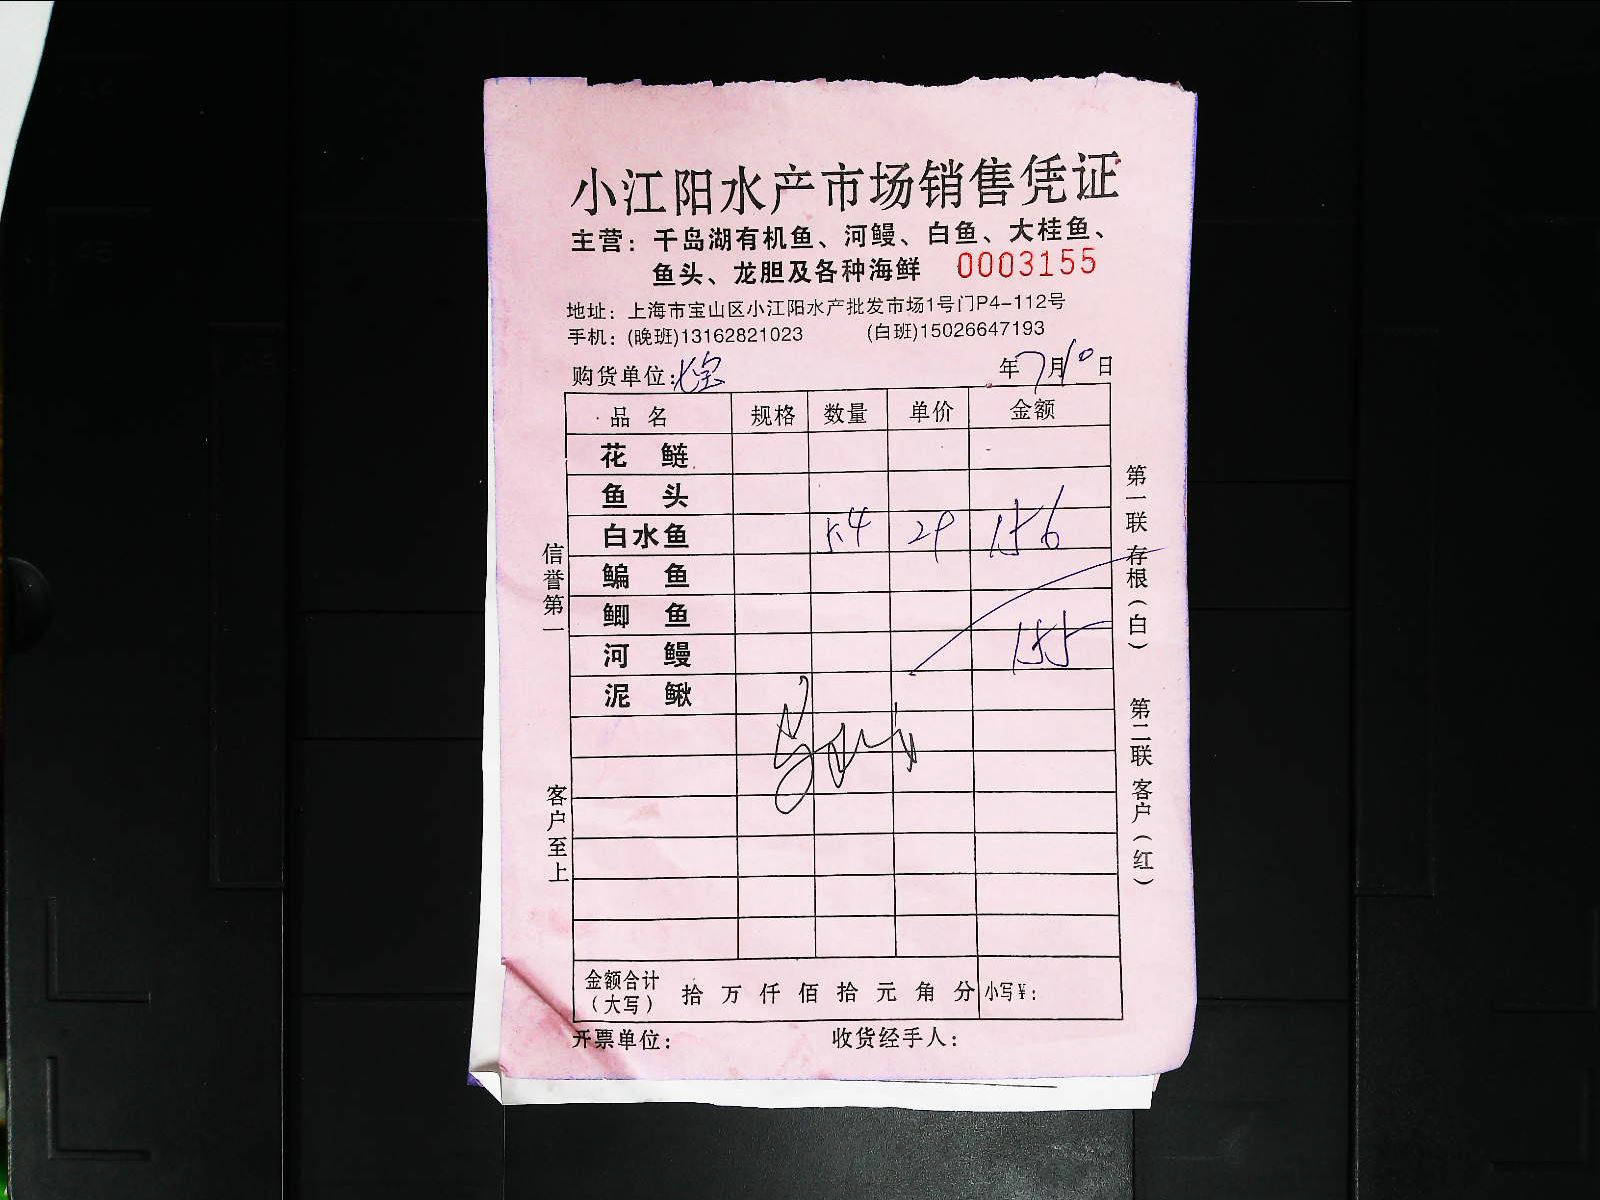 小江阳水产市场销售凭证
主营：千岛湖有机鱼、河鳗、白鱼、大桂鱼、
鱼头、龙胆及各种海鲜 0003155
地址：上海市宝山区小江阳水产批发市场1号门P4-112号
手机：(晚班)13162821023 (白班)15026647193
购货单位：七宝 年7月10日
品名 规格 数量 单价 金额
花鲢
鱼头
白水鱼 5.4 29 156
鳊鱼
鲫鱼
河鳗 155
泥鳅
金额合计（大写） 拾 万 仟 佰 拾 元 角 分 小写¥：
开票单位： 收货经手人：
信誉第一
客户至上
第一联 存根（白）
第二联 客户（红）